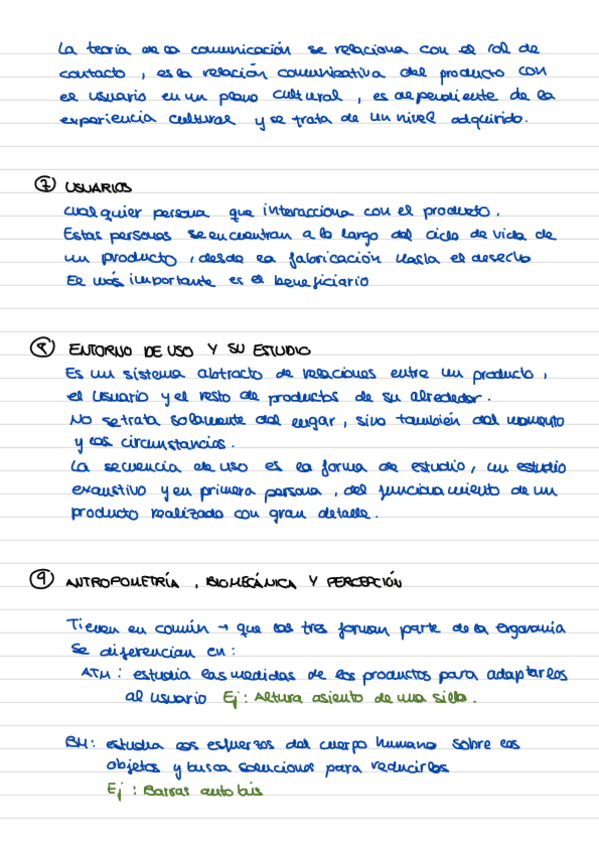 La teoría de la comunicación se relaciona con el rol de
contacto, es la relación comunicativa del producto con
el usuario en un plano cultural, es dependiente de la
experiencia cultural y se trata de un nivel adquirido.
7 USUARIOS
cualquier persona que interacciona con el producto.
Estas personas se encuentran a lo largo del ciclo de vida de
un producto, desde la fabricación hasta el desecho
El más importante es el beneficiario
8 ENTORNO DE USO Y SU ESTUDIO
Es un sistema abstracto de relaciones entre un producto,
el usuario y el resto de productos de su alrededor.
No se trata solamente del lugar, sino también del momento
y las circunstancias.
La secuencia de uso es la forma de estudio, un estudio
exaustivo y en primera persona, del funcionamiento de un
producto realizado con gran detalle.
9 ANTROPOMETRÍA, BIOMECÁNICA Y PERCEPCIÓN
Tienen en común → que las tres forman parte de la ergonomia
Se diferencian en:
ATM: estudia las medidas de los productos para adaptarlos
al usuario Ej: Altura asiento de una silla.
BM: estudia los esfuerzos del cuerpo humano sobre los
objetos y busca soluciones para reducirlos
Ej: Barras autobis